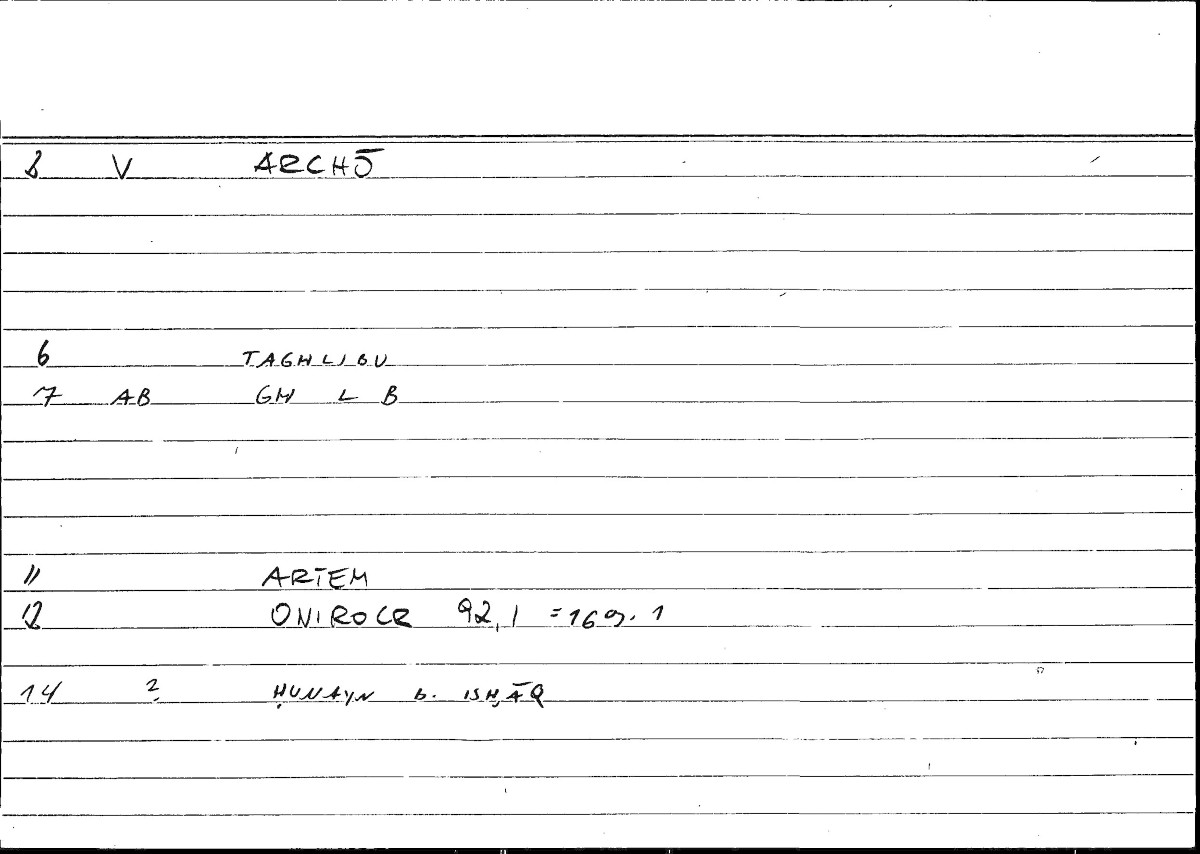 1 V ARCHŌ
6 TAGHLIBU
7 AB GH L B
11 ARTEM
12 ONIROCR 92,1 =169.1
14 2 ḤUNAYN b. ISḤĀQ